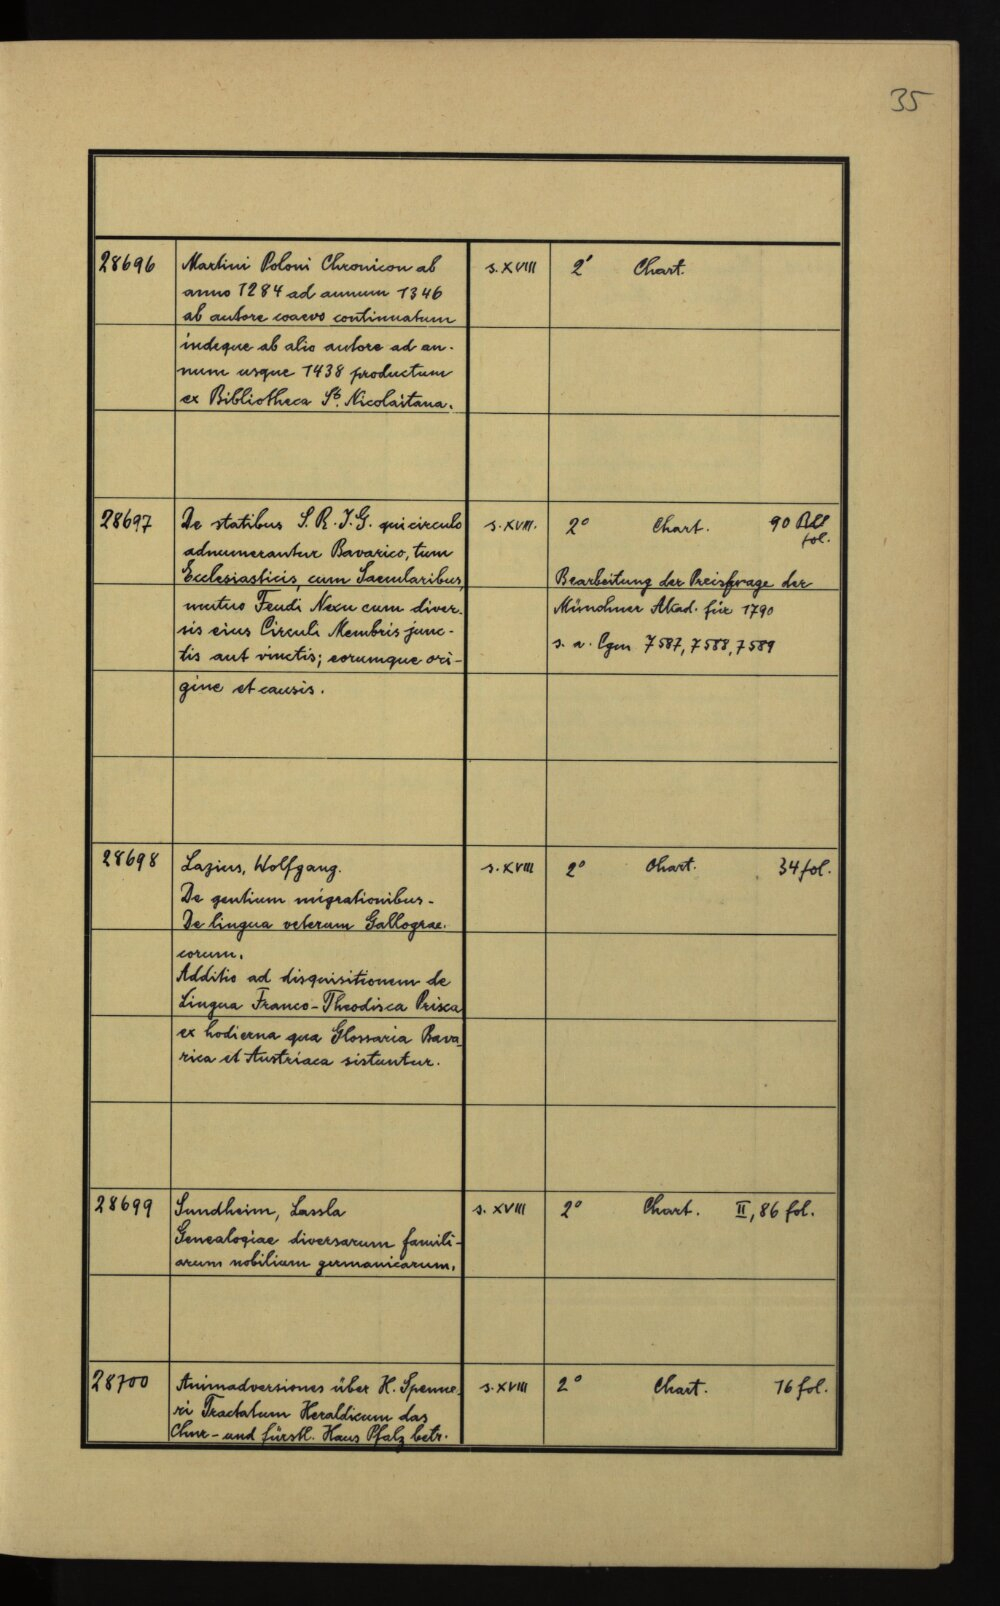 35
28696 Martini Poloni Chronicon ab s. XVIII 2° Chart.
anno 1284 ad annum 1346
ab autore coaevo continuatum
indeque ab alio autore ad an-
num usque 1438 productum
ex Bibliotheca Sᵗ. Nicolaitana.
28697 De statibus S. R. I. G. qui circulo s. XVIII. 2° Chart. 90 Bll
fol.
adnumerantur Bavarico, tum
Ecclesiasticis, cum Saecularibus, Bearbeitung der Preisfrage der
mutuo Feudi Nexu cum diver- Münchner Akad. für 1790
sis eius Circuli Membris junc- s. a. Cgm 7587, 7588, 7589
tis aut vinctis; eorumque ori-
gine et causis.
28698 Lazius, Wolfgang. s. XVIII 2° Chart. 34 fol.
De gentium migrationibus-
De lingua veterum Gallograe-
corum.
Additio ad disquisitionem de
Lingua Franco-Theodisca Prisca
ex hodierna qua Glossaria Bava-
rica et Austriaca sistuntur.
28699 Sundheim, Lassla s. XVIII 2° Chart. II, 86 fol.
Genealogiae diversarum famili-
arum nobilium germanicarum.
28700 Animadversiones über H. Spenne- s. XVIII 2° Chart. 16 fol.
ri Tractatum Heraldicum das
Chur- und fürstl. Haus Pfalz betr.